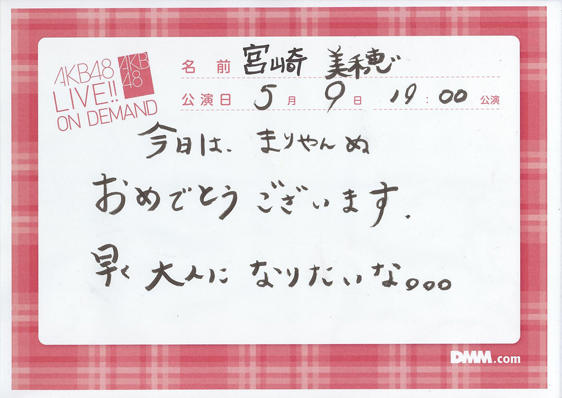 AKB48
LIVE!!
ON DEMAND
AKB
48
名 前 宮崎 美穂
公演日 5 月 9 日 19:00 公演
今日は、まりやんぬ
おめでとうございます.
早く 大人に なりたいな。。。
DMM.com